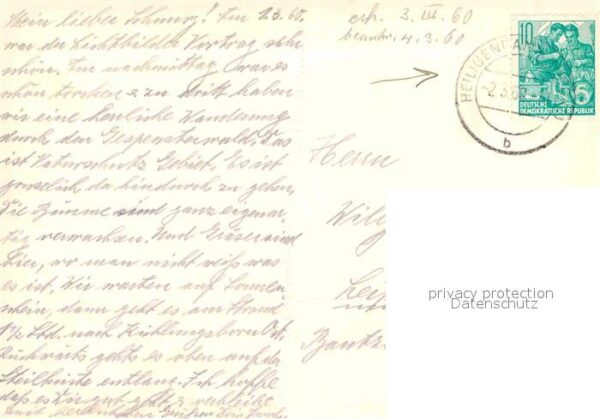 Mein lieber Schnurz! Im 2.3.60.
war der Lichtbilder Vortrag sehr
schön. Im nachmittag war es
schön trocken & zu dritt haben
wir eine herrliche Wanderung
durch den Gespensterwald. Das
ist Naturschutz Gebiet. Es ist
gruselich da hindurch zu gehen.
Die Bäume sind ganz eigenar
tig verwachsen. Und Gräser sind
hier, wo man nicht weiß was
es ist. Wir warten auf Sonnen
schein, dann geht es am Strand
1½ Std. nach Kühlungsborn Ost.
Rückwärts gehts es oben auf der
Steilküste entlang. Ich hoffe
daß es Dir gut geht & verbleibe
mit herzlichen Grüßen Dein
erh. 3. III. 60
beantw. 4.3.60
HEILIGENDAMM
-2.3.60
b
10
DEUTSCHE
DEMOKRATISCHE REPUBLIK
Herrn
Leip
Bautz
privacy protection
Datenschutz